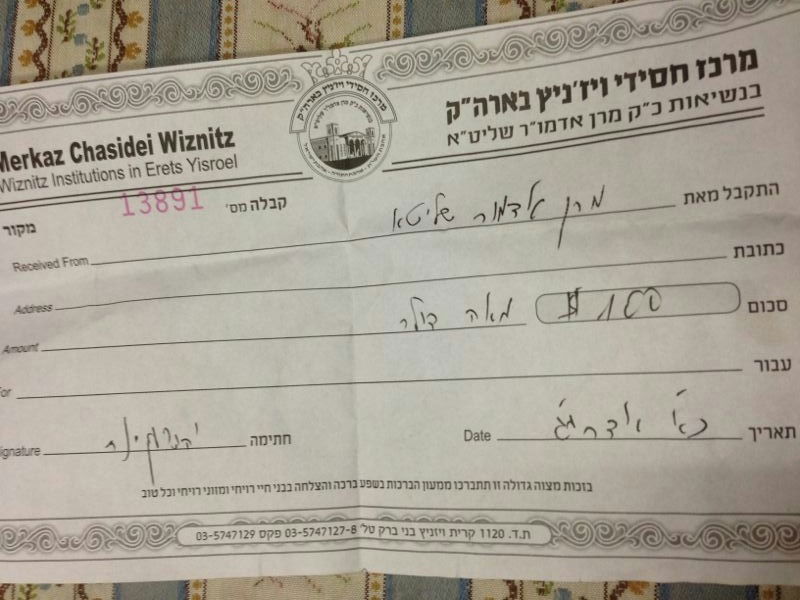 מרכז חסידי ויז'ניץ בארה"ק
בנשיאות כ"ק מרן אדמו"ר שליט"א
Merkaz Chasidei Wiznitz
Wiznitz Institutions in Erets Yisroel
מרכז חסידי ויז'ניץ בארה"ק
מקור
קבלה מס' 13891
התקבל מאת מרן אדמור שליטא Received From
כתובת Address
סכום $100 מאה דולר Amount
עבור For
תאריך Date
חתימה Signature
בזכות מצוה גדולה זו תתברכו ממעון הברכות בשפע ברכה והצלחה בבני חיי רויחי ומזוני רויחי וכל טוב
ת.ד. 1120 קרית ויזניץ בני ברק טל' 03-5747127-8 פקס 03-5747129